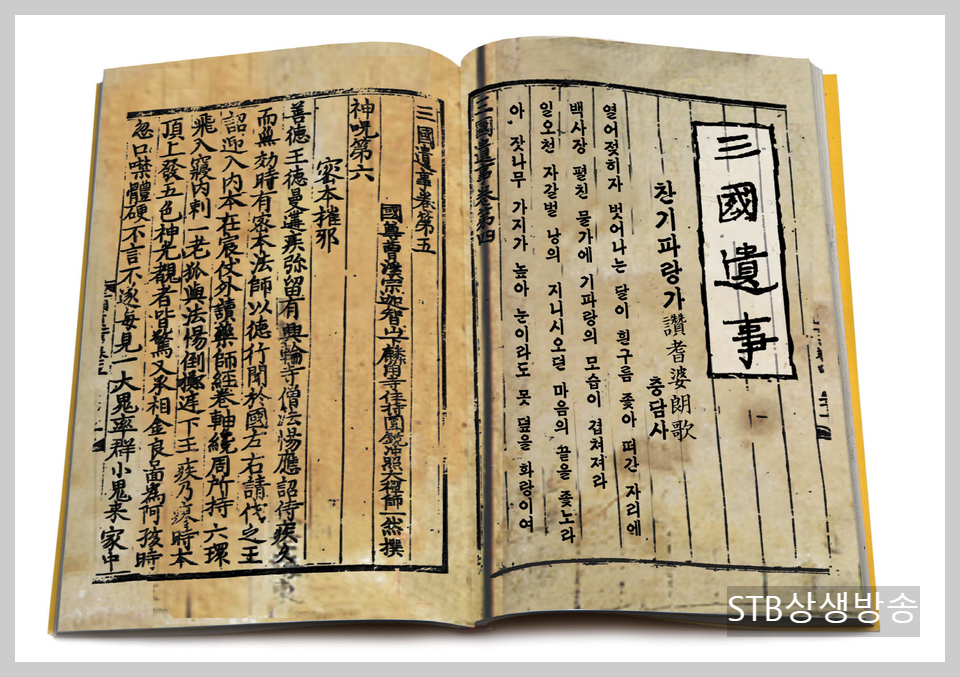 三國遺事
찬기파랑가 讚耆婆朗歌
충담사
열어젖히자 벗어나는 달이 흰구름 좇아 떠간 자리에
백사장 펼친 물가에 기파랑의 모습이 겹쳐져라
일오천 자갈벌 낭의 지니시오던 마음의 끝을 좇노라
아 잣나무 가지가 높아 눈이라도 못 덮을 화랑이여
三國遺事卷第四
三國遺事卷第五
國尊曹溪宗迦智山下麟角寺住持圓鏡冲照大禪師一然撰
神呪第六
密本摧邪
善德王德曼遘疾弥留有興輪寺僧法惕應詔侍疾久
而無効時有密本法師以德行聞於國左右請代之王
詔迎入内本在宸仗外讀藥師經卷軸纔周所持六環
飛入寢内刺一老狐與法惕倒擲庭下王疾乃瘳時本
頂上發五色神光覩者皆驚又承相金良啚爲阿孩時
忽口噤體硬不言不遂每見一大鬼率群小鬼来家中
STB상생방송